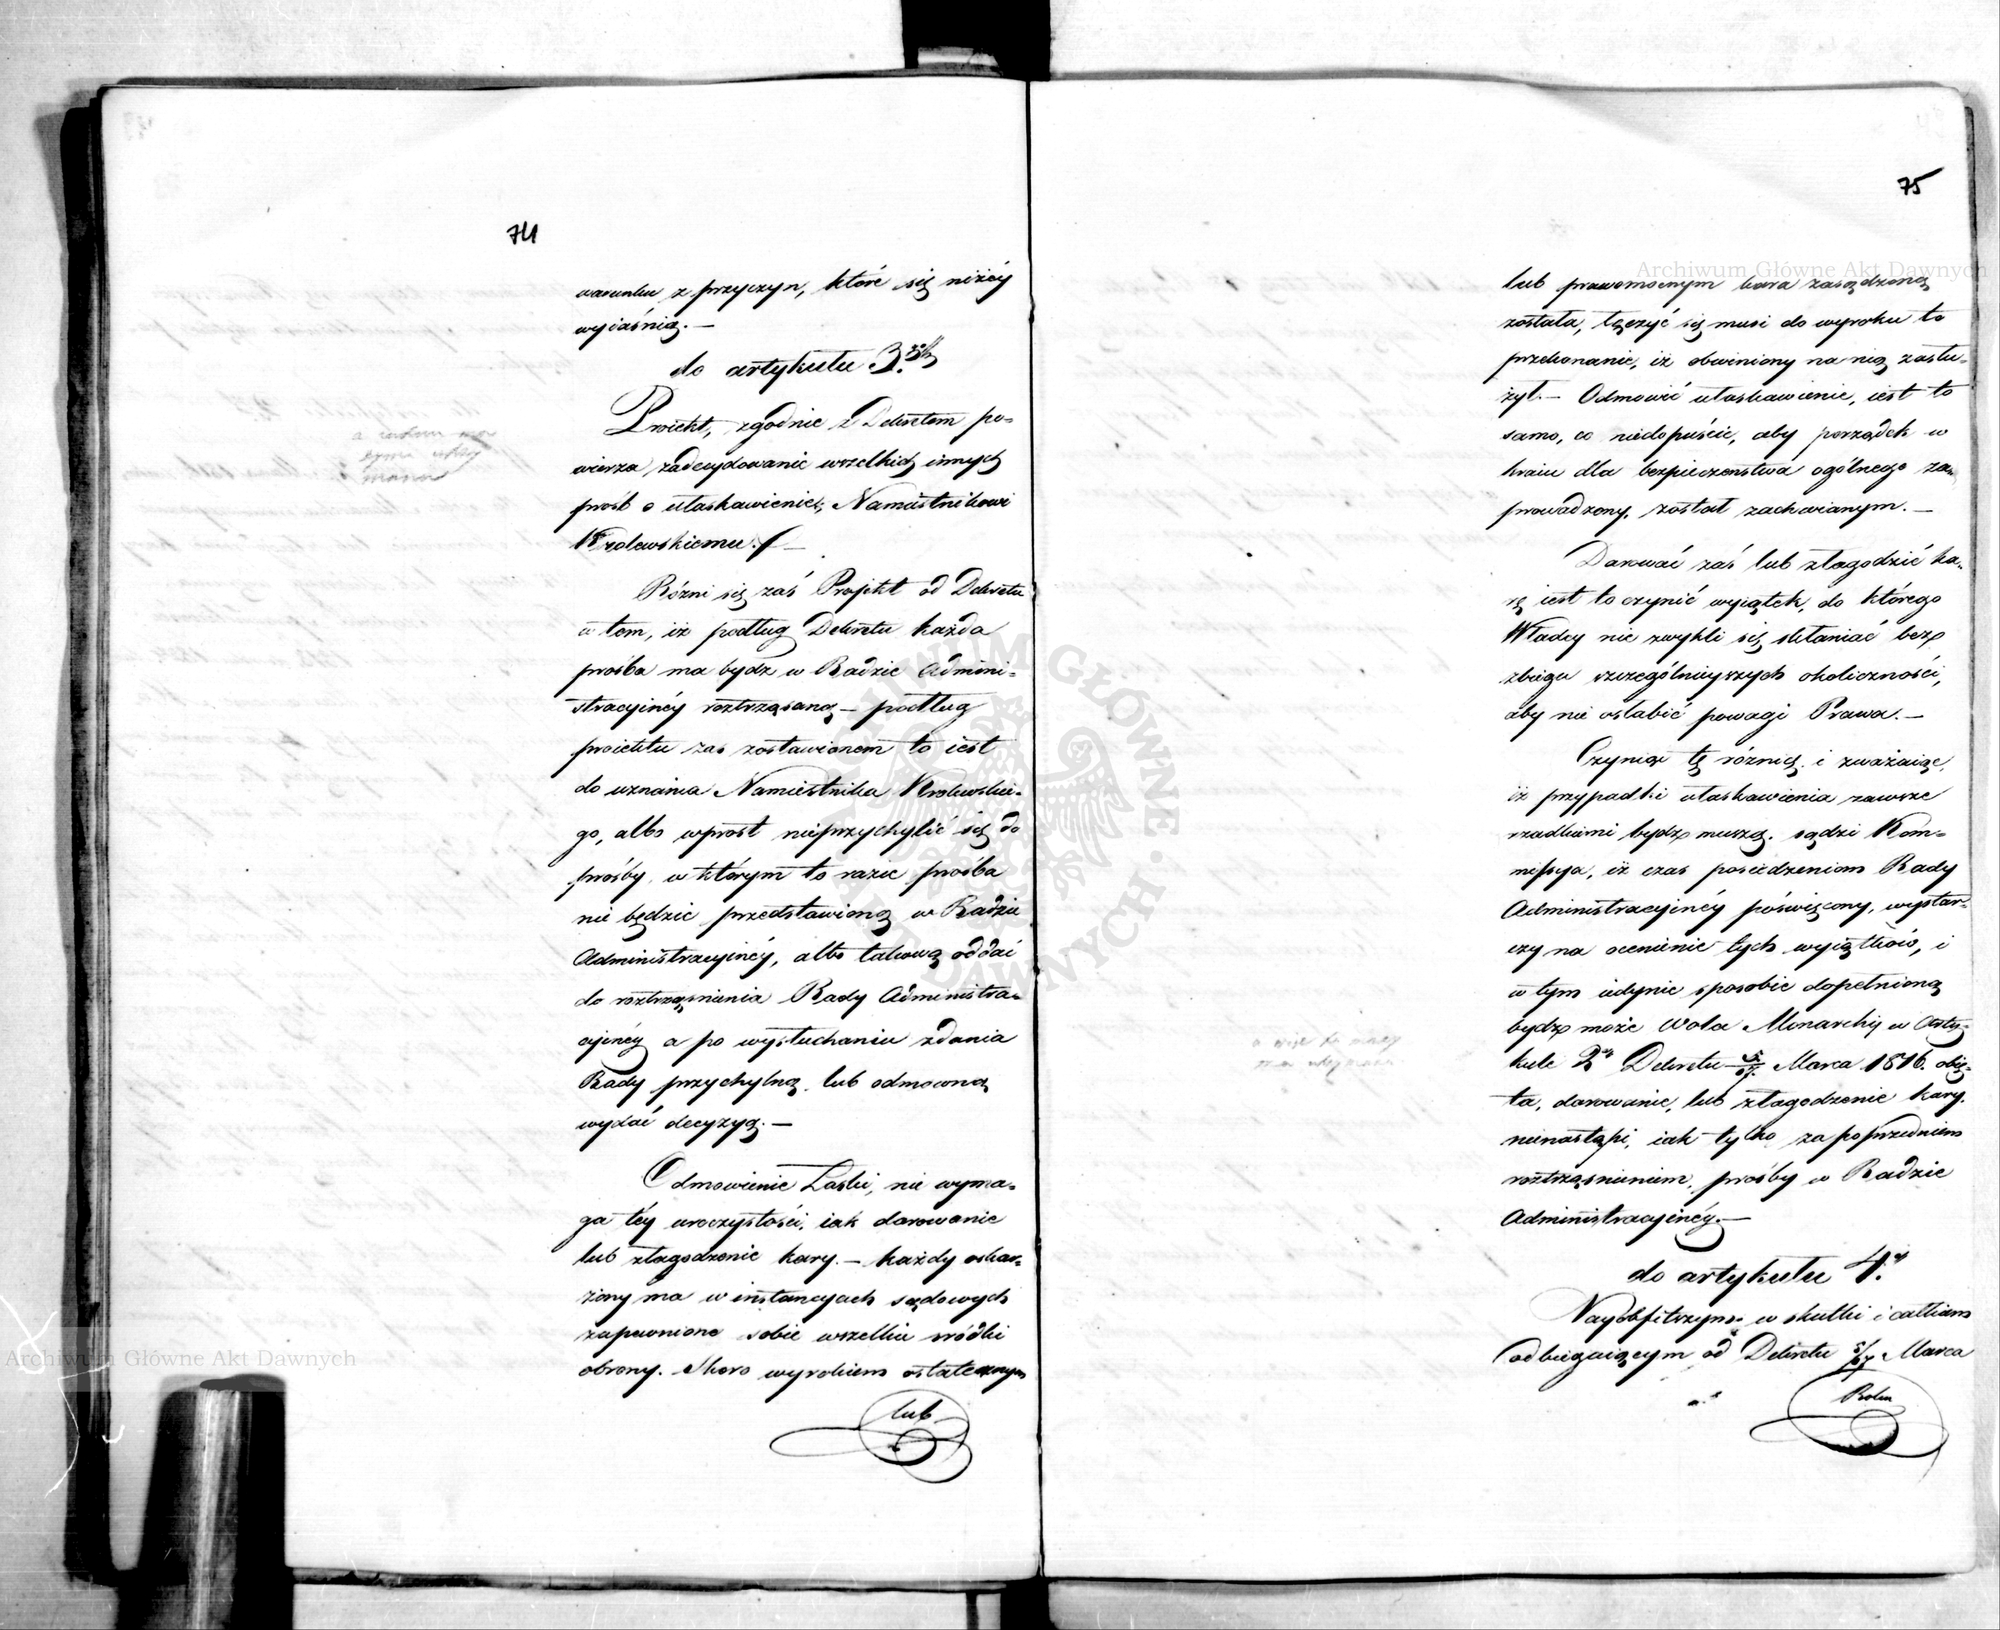 74
warunku z przyczyn, które się niżéy
wyiaśnią. —
do artykułu 3.
Proiekt, zgodnie z Dekretem po-
wierza zadecydowanie wszelkich innych
prośb o ułaskawienie, Namiestnikowi
Krolewskiemu. —
Różni się zaś Projekt od Dekretu
w tem, iż podług Dekretu każda
prośba ma bydz w Radzie Admini-
stracyjnéy roztrząsaną — podług
proiektu zas zostawionem to iest
do uznania Namiestnika Krolewskie-
go, albo wprost nieprzychylić się do
prośby, w którym to razie prośba
nie będzie przedstawioną w Radzie
Administracyjnéy, albo takową oddać
do roztrząśnienia Rady Administra-
cyjnéy a po wysłuchaniu zdania
Rady przychylną lub odmowną
wydać decyzyą. —
Odmowienie Łaski, nie wyma-
ga téy uroczystości, iak darowanie
lub złagodzenie kary. — każdy oskar-
żony ma w instancyach sądowych
zapewnione sobie wszelkie sródki
obrony. Skoro wyrokiem ostatecznym
lub
75
lub prawomocnym kara zasądzoną
została, łączyć się musi do wyroku to
przekonanie, iż obwiniony na nią zasłu-
żył. — Odmowić ułaskawienie, iest to
samo, co niedopuścić, aby porządek w
kraiu dla bezpieczenstwa ogólnego za-
prowadzony, został zachwianym. —
Darować zaś lub złagodzić ka-
rę iest to czynić wyiątek, do którego
Władcy nie zwykli się skłaniać bez
zbiegu szczególnieyszych okoliczności,
aby nie osłabić powagi Prawa. —
Czyniąc tę różnicę i zważaiąc,
iż przypadki ułaskawienia zawsze
rzadkiemi bydz muszą, sądzi Kom-
missya, iż czas posiedzeniom Rady
Administracyjnéy poświęcony, wystar-
czy na ocenienie tych wyiątków, i
w tym iedynie sposobie dopełnioną
bydz może Wola Monarchy w Arty-
kule 2 Dekretu Marca 1816. obię-
ta, darowanie, lub złagodzenie kary,
nienastąpi, iak tylko za poprzedniem
roztrząśnieniem, prośby w Radzie
Administracyjnéy. —
do artykułu 4.
w skutki i całkiem
odbiegaiącym od Dekretu Marca
Roku
Archiwum Główne Akt Dawnych
Archiwum Główne Akt Dawnych
ARCHIWUM GŁÓWNE AKT DAWNYCH